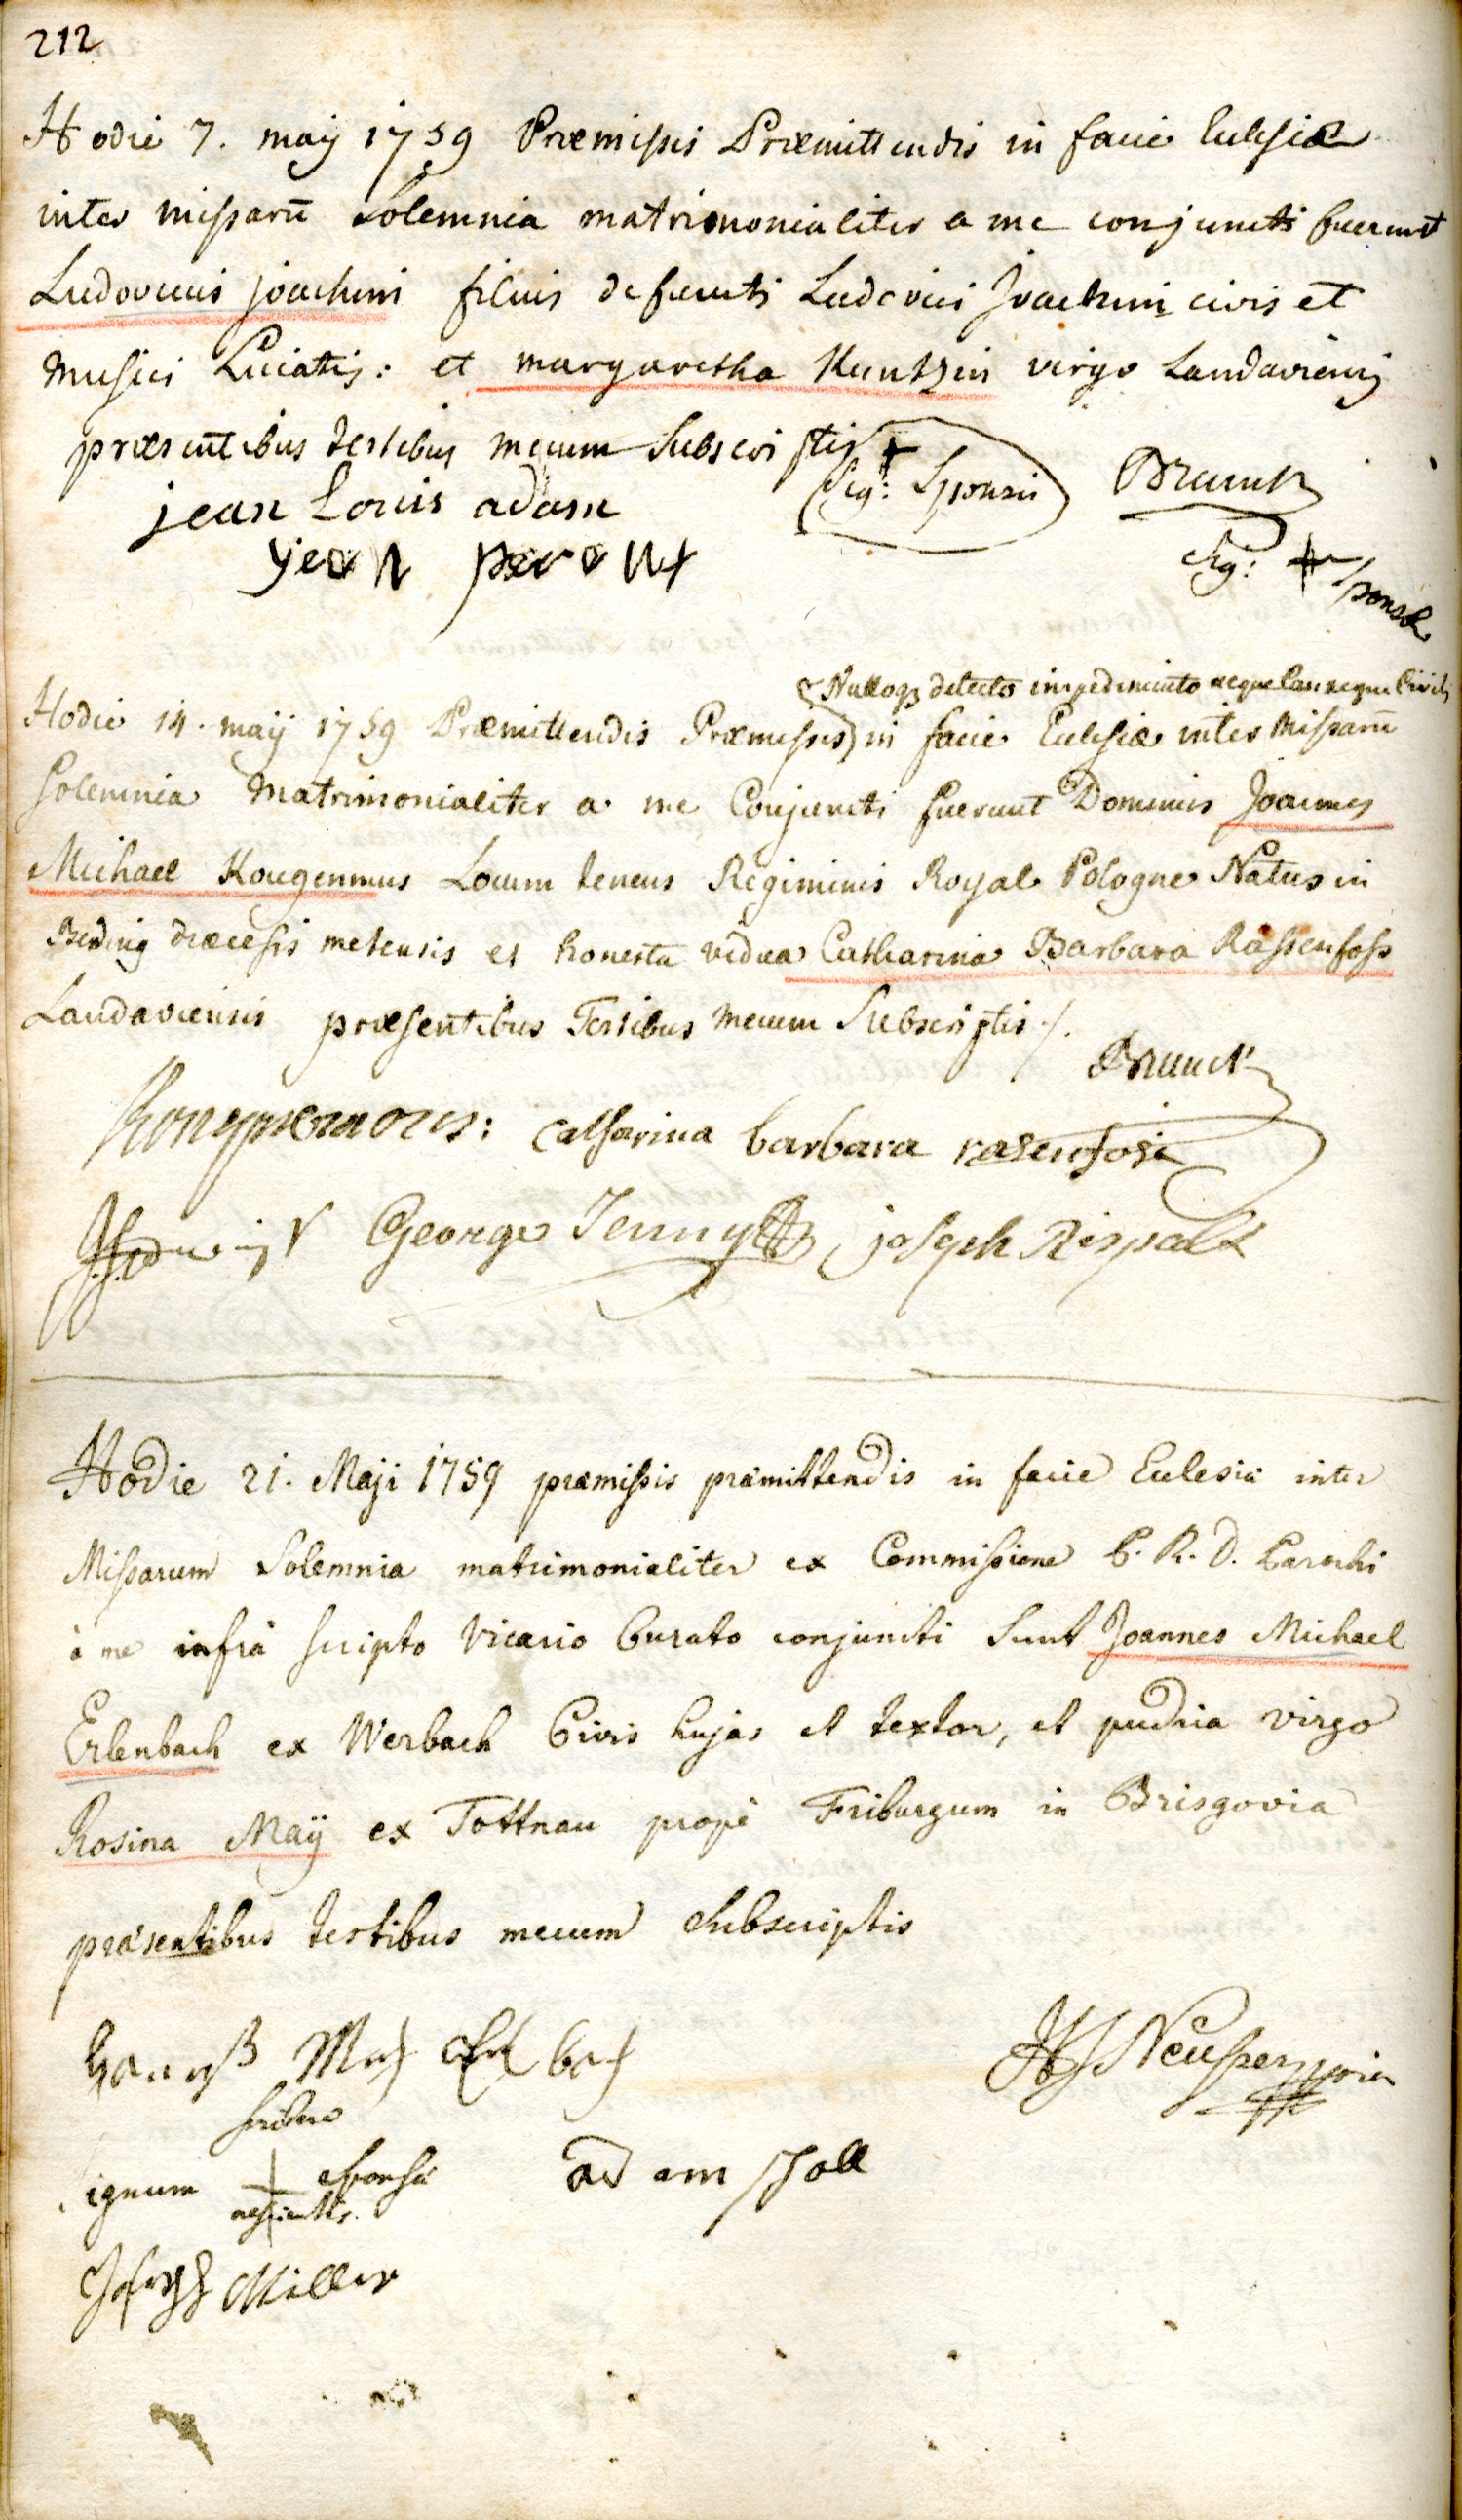 212
Hodie 7. maÿ 1759 Præmissis Præmittendis in facie Eclesiæ
inter missarū Solemnia matrimonialiter a me conjuncti fuerunt
Ludovicus joachim filius defuncti Ludovici Joachim civis et
musici : et margaretha Kuntzin virgo Landaviensis
præsentibus testibus mecum Subscriptis
Sig: + Sponsi Brunck
jean Louis adam
yean
Sig: + Sponsæ
& Nulloq₃ detecto impedimento neque Can neque Civili
Hodie 14. maÿ 1759 Præmittendis Præmissis in facie Eclesiæ inter Missarū
Solemnia Matrimonialiter a me Conjuncti fuerunt Dominus Joannes
Michael Locum tenens Regiminis Royal Pologne Natus in
Beding diœcesis metensis et honesta vidua Catharina Barbara Rassenfoss
Landaviensis præsentibus Testibus mecum Subscriptis ./.
Brunck
catharina barbara rasenfosin
George Jenny joseph Rispalt
Hodie 21. Maji 1759 præmissis præmittendis in facie Eclesiä inter
Missarum Solemnia matrimonialiter ex Commissione P. R. D. Parochi
à me infrà scripto Vicario Curato conjuncti Sunt Joannes Michael
Erlenbach ex Werbach Civis hujas et textor, et pudica virgo
Rosina Maÿ ex Tottnau propè Friburgum in Brisgovia
präsentibus testibus mecum Subscriptis
signum + sponsä
scribere
nescientis.
adam Noll
Joseph Miller